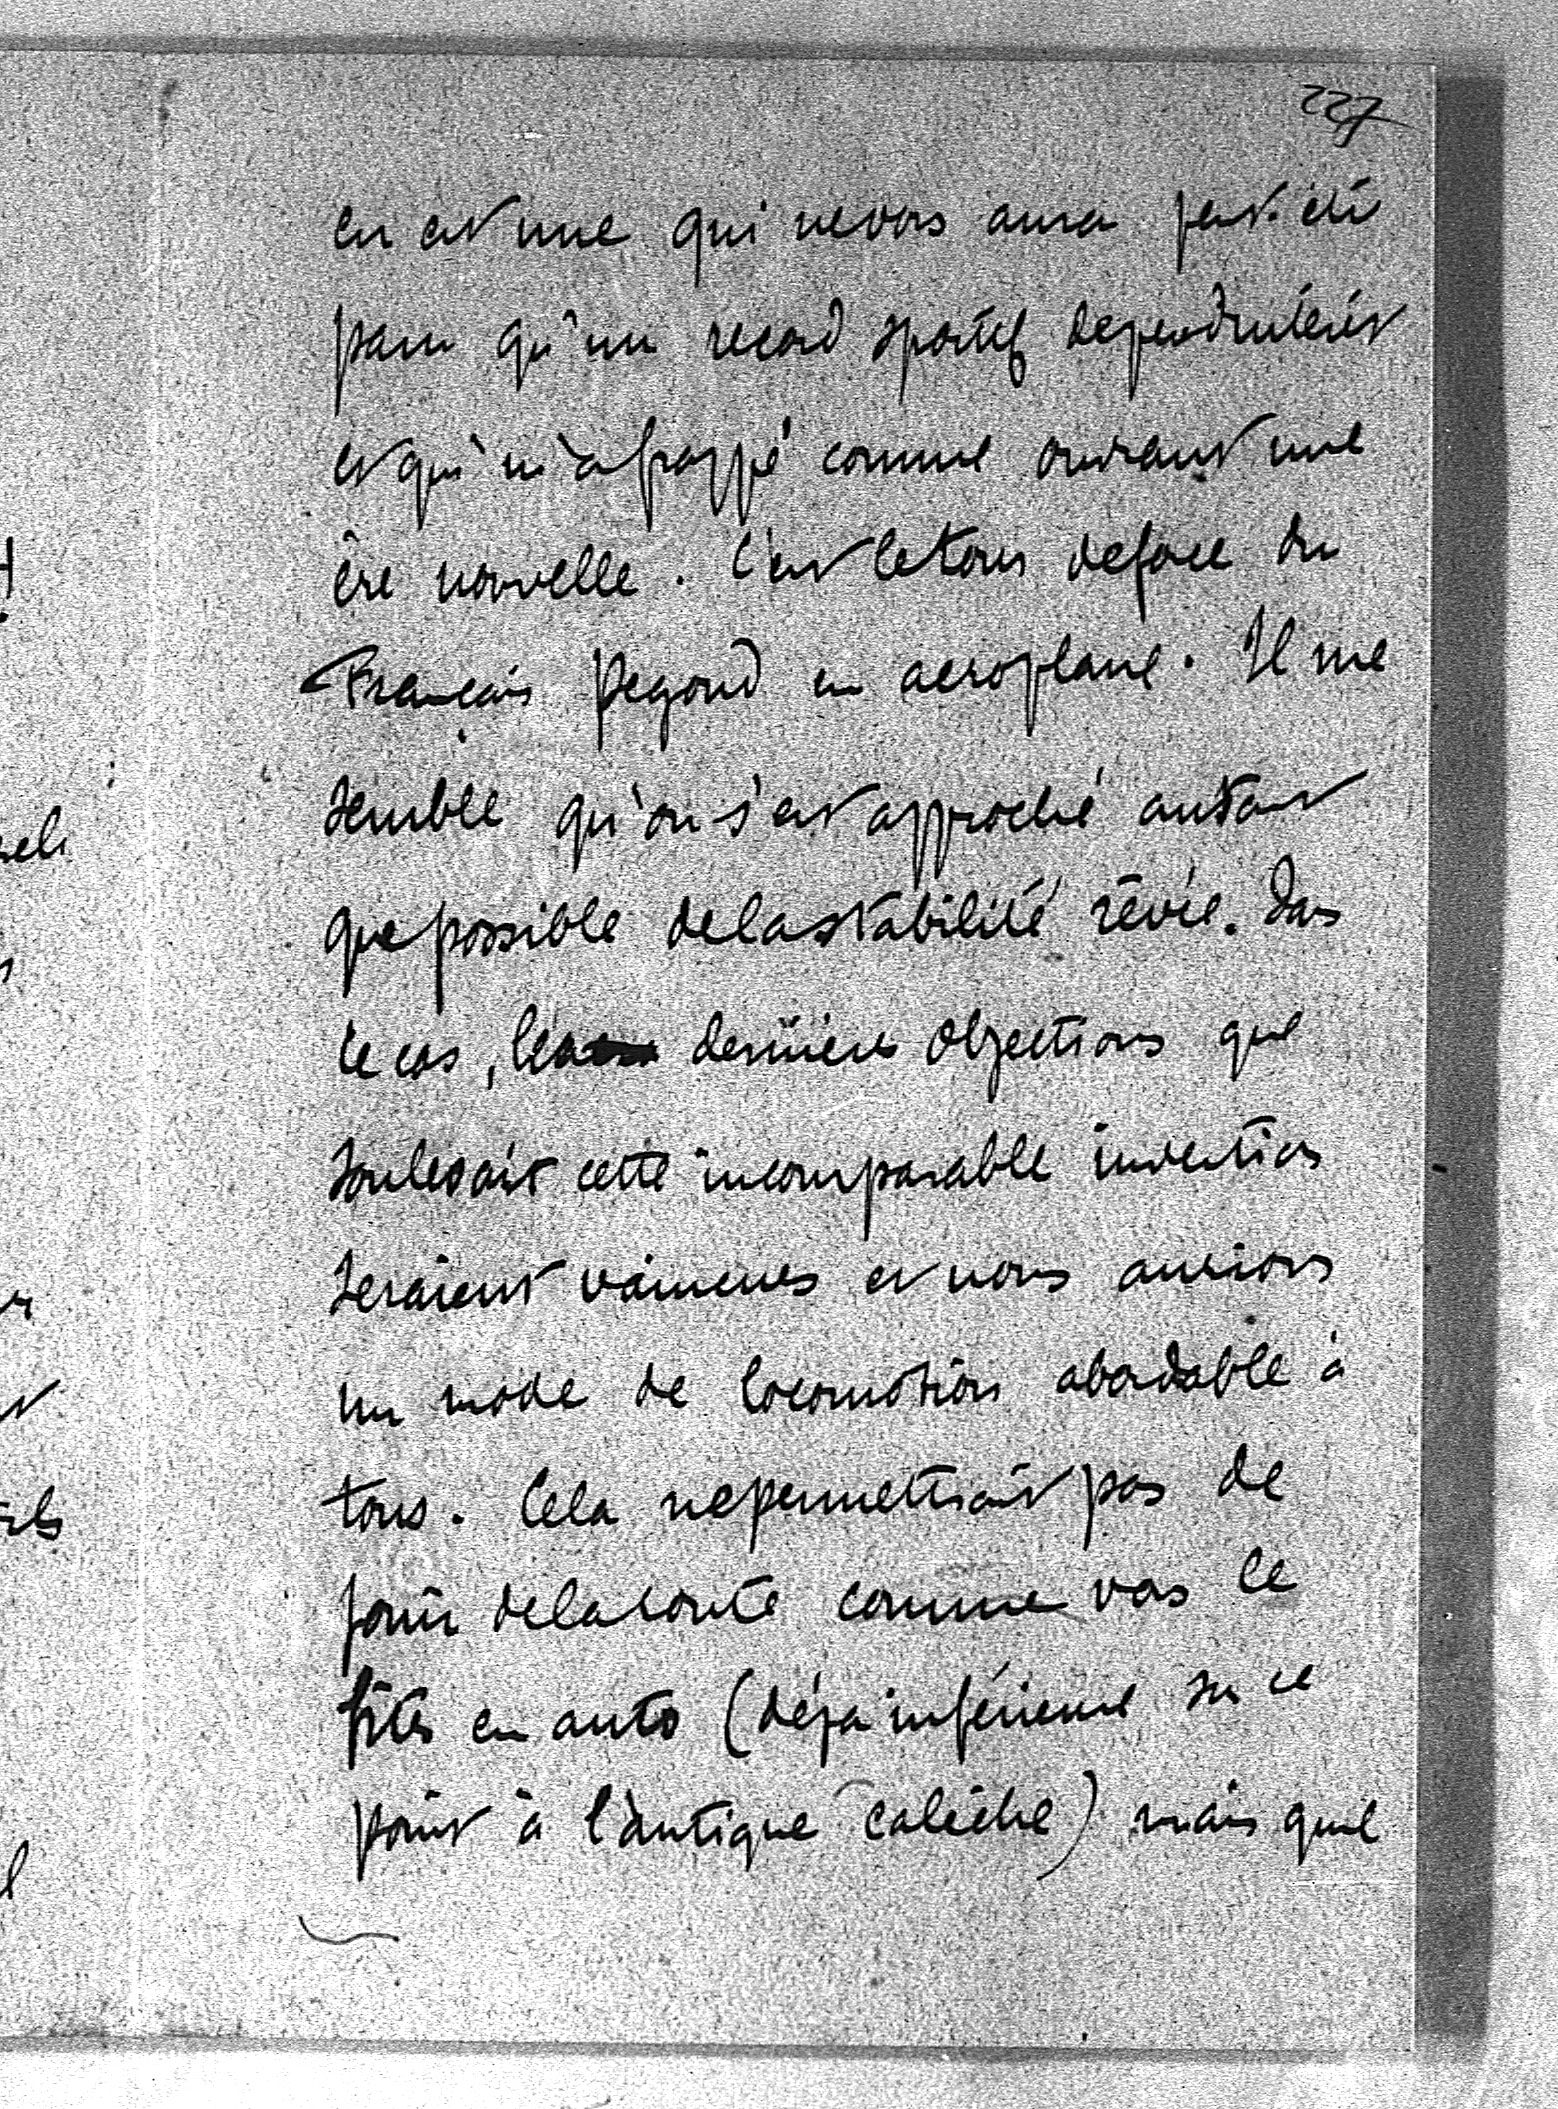 227
en est une qui ne vous aura peut-être
paru qu'un record sportif de peu d'intérêt
et qui m'a frappé comme ouvrant une
ère nouvelle. C'est le tour de force du
Français Pegoud en aeroplane. Il me
semble qu'on s'est approché autant
que possible de la stabilité rêvée. Dans
ce cas, les dernières objections que
soulevait cette incomparable invention
seraient vaincues et nous aurions
un mode de locomotion abordable à
tous. Cela ne permettrait pas de
jouir de la route comme vous le
fîtes en auto (déja inférieure sur ce
point à l'antique calèche) mais quel